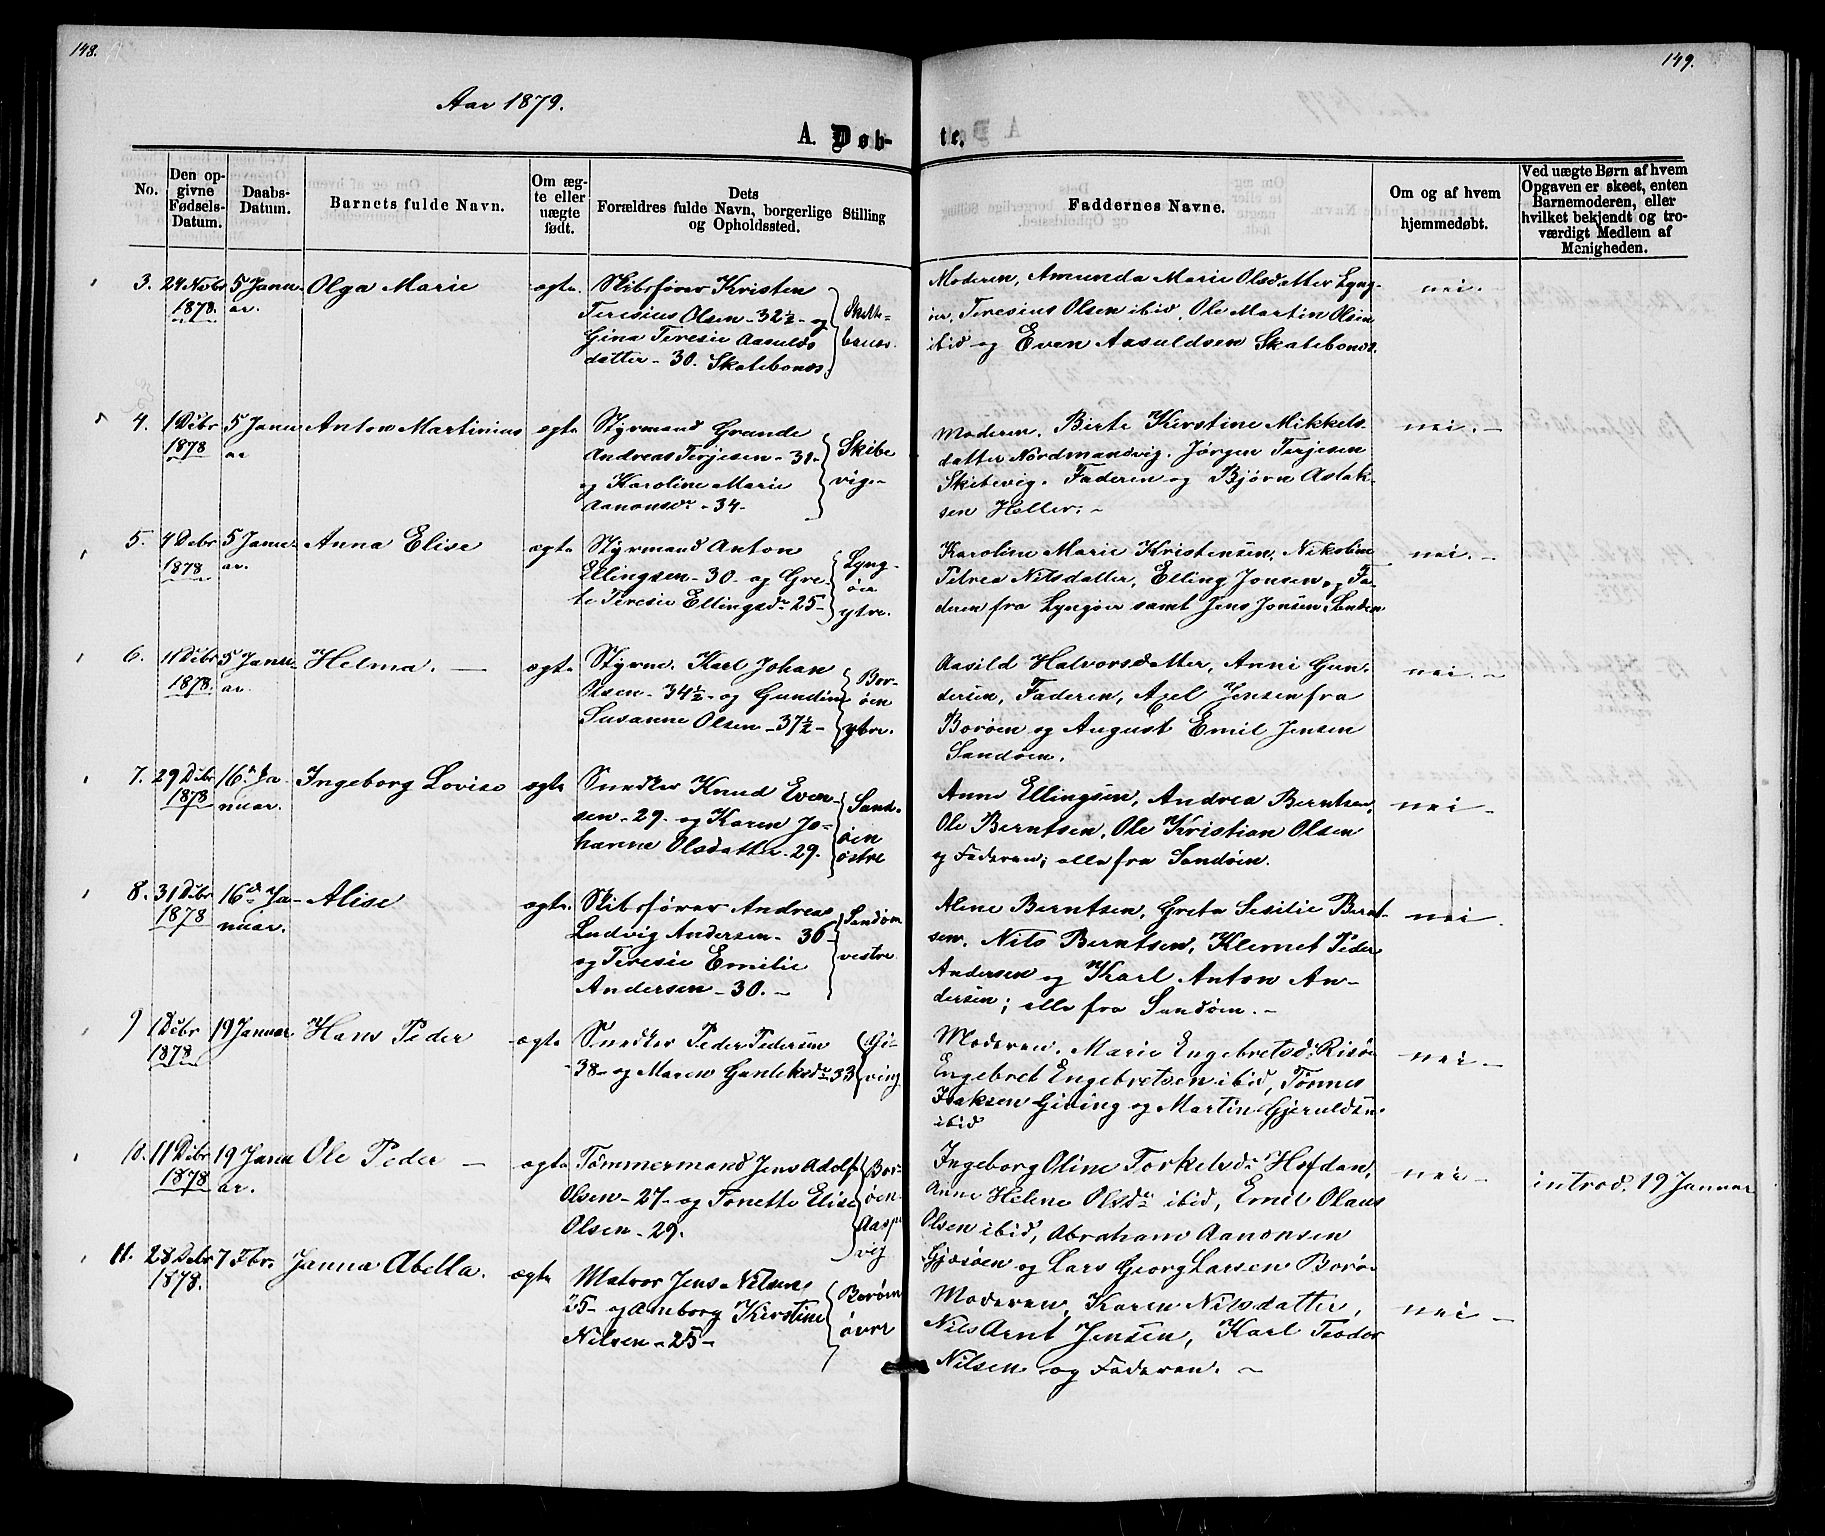 148.
149.
Aar 1879.
A. Døb-
te.
No.
Den op-
givne
Fødsels-
Datum.
Daabs-
Datum.
Barnets fulde Navn.
Om æg-
te eller
uægte
født.
Dets
Forældres fulde Navn, borgerlige Stilling
og Opholdssted.
Faddernes Navne.
Om og af hvem
hjemmedøbt.
Ved uægte Børn af hvem
Opgaven er skeet, enten
Barnemoderen, eller
hvilket bekjendt og tro-
værdigt Medlem af
Menigheden.
3. 24 Novbr 5 Janu- Olga Marie ægte Skibsfører Kristen
1878. ar. Teresius Olsen - 32½ - og
Gina Teresie Aasulds
datter - 30. Skatebonæs.
Moderen, Amunda Marie Olsdatter Lyng-
ør, Teresius Olsen ibid, Ole Martin Olsen
ibid og Even Aasuldsen Skatebonæs.
nei. -
4. 1 Dcbr 5 Janu Anton Martinius ægte Styrmand Grunde
1878 ar Andreas Terjesen - 31 - Skibe
og Karoline Marie vig. -
Aanonsdr - 34 -
Moderen, Birte Kirstine Mikkels
datter Nordmandvig. Jørgen Terjesen
Skibevig. Faderen og Bjørn Aslak-
sen Holler; -
nei. -
5. 4 Decbr 5 Januar Anna Elise ægte Styrmand Anton
1878 ar. Ellingsen - 30 - og Gre- Lyng-
te Teresie Ellingsdr 25 - øer
ytre.
Karoline Marie Kristensen, Nikoline
Petrea Nilsdatter, Elling Jonsen og Fa-
deren fra Lyngøer samt Jens Jonsen,
nei. -
6. 11 Dcbr 5 Janu- Helma. - ægte Styrm. Karl Johan
1878. ar. Olsen - 34½ - og Gundine Bor-
Susanne Olsen - 37½ - øen
ytre.
Aasild Halvorsdatter, Anni Gun-
dersen, Faderen, Axel Jensen fra
Borøen og August Emil Jensen
Sandøen.
nei. -
7. 29 Dcbr 16. Ja- Ingeborg Lovise ægte Snedker Knud Even-
1878 nuar. sen - 29 - og Karen Jo- Sand-
hanne Olsdatter - 29. øen
østre
Anne Ellingsen, Andrea Berntsen,
Ole Berntsen, Ole Kristian Olsen
og Faderen; alle fra Sandøen.
nei -
8. 31 Dcbr 16d Ja- Alise ægte. Skibsfører Andreas
1878 nuar. Ludvig Andersen - 36 - Sandøen
og Teresie Emilie vestre
Andersen - 30. -
Aline Berntsen, Greta Sesilie Bernt-
sen, Nils Berntsen, Klemet Peder
Andersen og Karl Anton An-
dersen; alle fra Sandøen. -
nei.
9 1 Dcbr 19 Januar Hans Peder ægte Snedker Peder Pedersen Gi-
1878 38 - og Maren Guntiksdr 33 ving
Moderen, Marie Engebretsd: Risør
Engebret Engebretsen ibid, Tønnes
Isaksen Giving og Martin Gjeruldsen
ibid
nei -
10. 11 Dcbr 19 Janu Ole Peder - ægte Tømmermand Jens Adolf Bor-
1878 ar. Olsen - 27 - og Tonette Elise øen
Olsen - 29. Aasp
vig
Ingeborg Oline Torkelsdr Hofdan,
Anne Helene Olsdr ibid, Emil Olaus
Olsen ibid, Abraham Aanonsen
Gjæsøen og Lars Georg Larsen Borø-
nei - introd. 19 Januar
11. 28 Decbr 7 Fbr. Janna Abella. ægte Matros Jens Nilsen
1878. 25 - og Anborg Kirstine Borøen
Nilsen - 25 - øvre
Moderen, Karen Nilsdatter,
Nils Arnt Jensen, Karl Teodor
Nilsen og Faderen. -
nei -